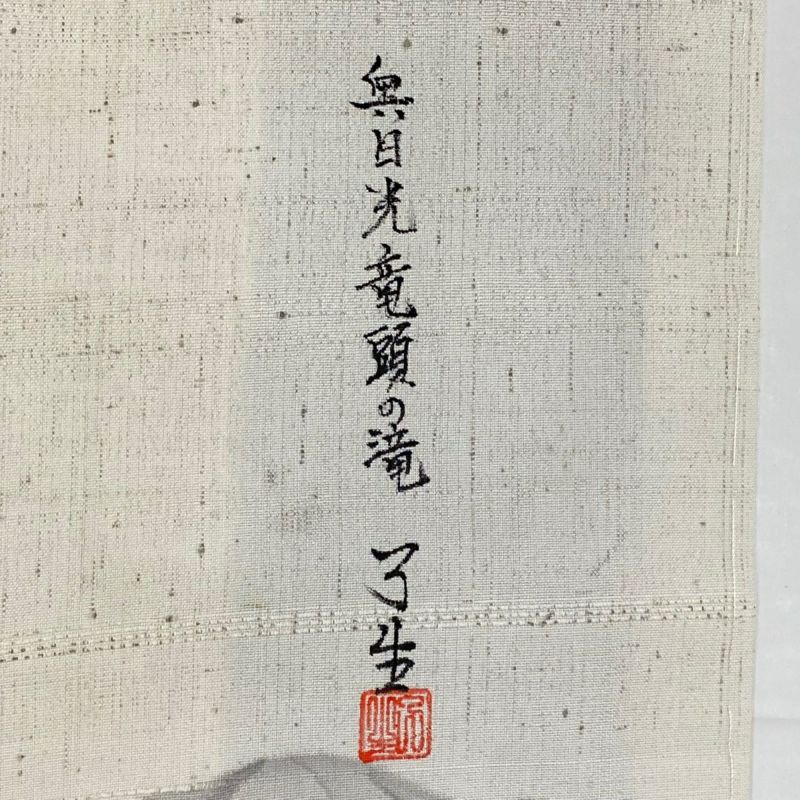 奥日光竜頭の滝 了生